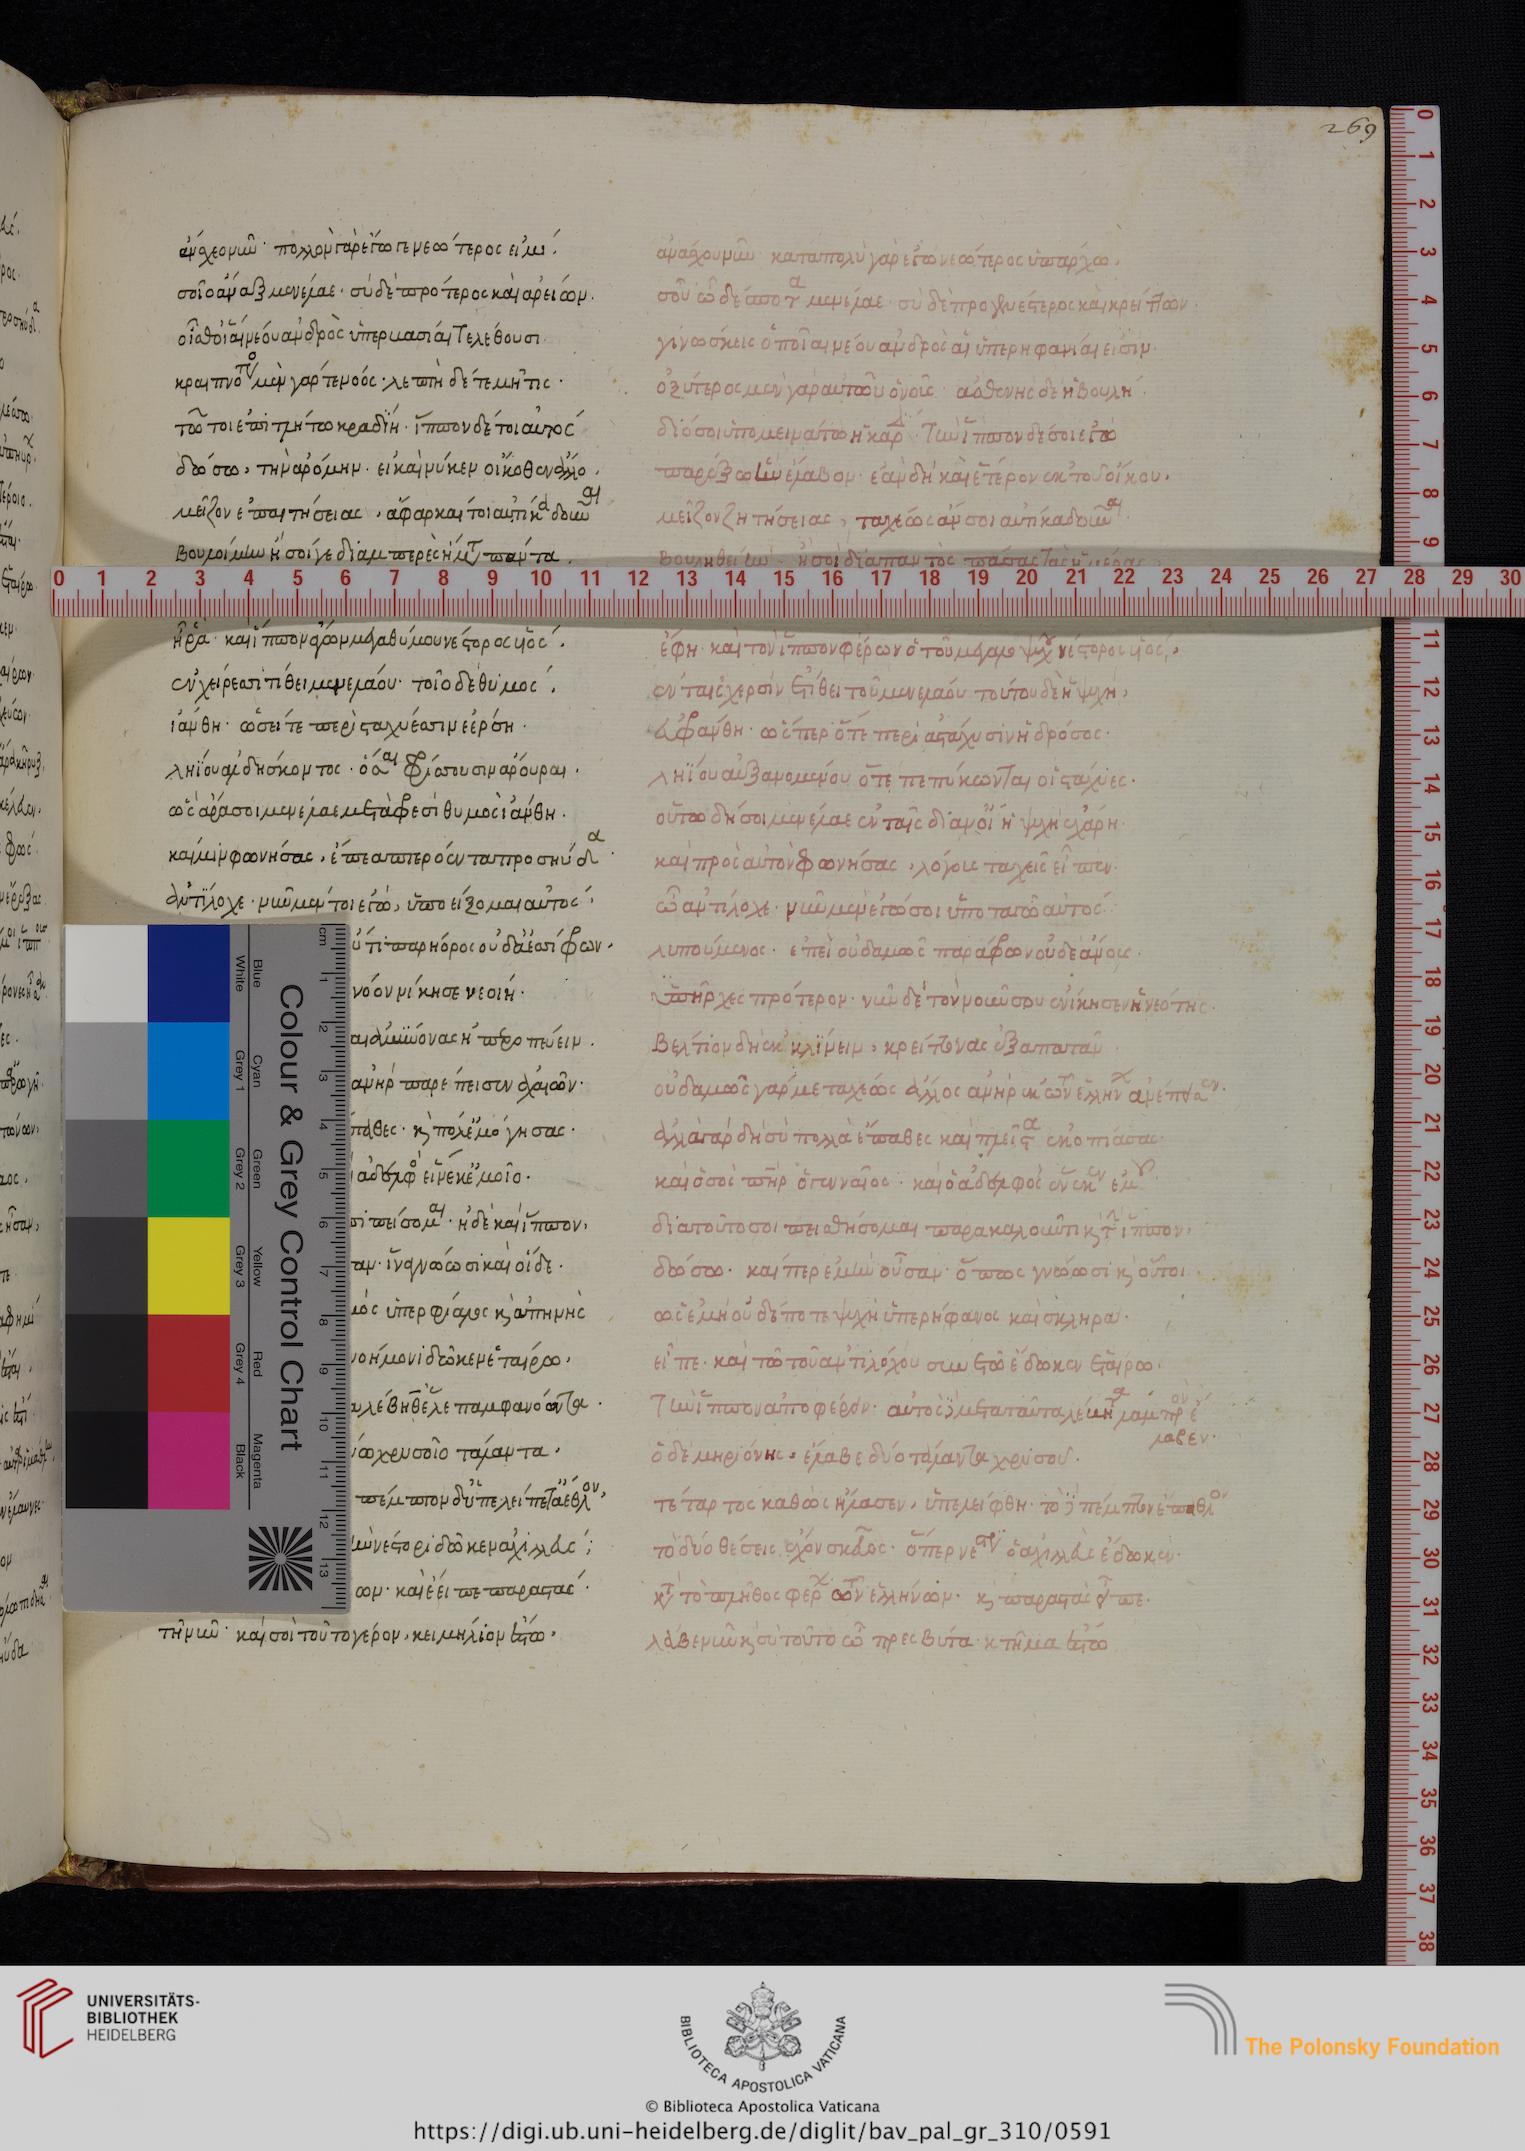 269
ἄνσχεο νῦν· πολλὸν γὰρ ἔγωγε νεώτερος εἰμί.
σεῖο ἄναξ μενέλαε· σὺ δὲ πρότερος καὶ ἀρείων.
οἶσθ' οἷαι νέου ἀνδρὸς ὑπερβασίαι τελέθουσι.
κραιπνότερος μὲν γάρ τε νόος· λεπτὴ δέ τε μῆτις.
τῶ τοι ἐπιτλήτω κραδίη· ἵππον δέ τοι αὐτός
δώσω, τὴν ἀρόμην. εἰ καί νύ κεν οἴκοθεν ἄλλο
μεῖζον ἐπαιτήσειας, ἄφαρ καί τοι αὐτίκα δοῦναι
βουλοίμην ἢ σοί γε διαμπερὲς ἤματα πάντα.
ἦ ῥα· καὶ ἵππον ἄγων μεγαθύμου νέστορος υἱός.
ἐν χείρεσι τίθει μενελάου· τοῖο δὲ θυμός.
ἰάνθη· ὡσεί τε περὶ σταχύεσσιν ἐέρση.
ληΐου ἀλδήσκοντος· ὅτε φρίσσουσιν ἄρουραι.
ὣς ἄρα σοι μενέλαε μετὰ φρεσὶ θυμὸς ἰάνθη.
καί μιν φωνήσας, ἔπεα πτερόεντα προσηύδα.
ἀντίλοχε· νῦν μέν τοι ἐγών, ὑποείξομαι αὐτός.
ὔτι παρήορος οὐδ' ἀεσίφρων.
νόον νίκησε νεοίη.
αι ἀμείνονας ἠπεροπεύειν.
ἀνὴρ παρέπεισεν ἀχαιῶν.
παθες· καὶ πολλ' ἐμόγησας.
ἀδελφὸς εἵνεκ' ἐμοῖο.
πιπείσομαι· ἠδὲ καὶ ἵππον,
αν· ἵνα γνώωσι καὶ οἵδε.
μὸς ὑπερφίαλος καὶ ἀπηνής
νοήμονι δῶκεν ἑταίρω.
λέβηθ' ἕλε παμφανόωντα.
ω χρυσοῖο τάλαντα.
πέμπτον δ' ὑπελείπετ' ἄεθλον,
ὴν νέστορι δῶκεν ἀχιλλεύς;
ων· καὶ ἔειπε παραστάς.
τῆ νῦν· καὶ σοὶ τοῦτο γέρον, κειμήλιον ἔστω.
ἀνάσχου νῦν· καταπολὺ γὰρ ἐγὼ νεώτερος ὑπάρχω.
σοῦ ὦ δέσποτα μενέλαε· σὺ δὲ προγενέστερος καὶ κρείττων.
γινώσκεις ὁποῖαι νέου ἀνδρὸς αἱ ὑπερηφανίαι εἰσιν.
ὀξύτερος μὲν γὰρ αὐτοῦ ὁ νοῦς· ἀσθενὴς δὲ ἡ βουλή.
διό σοι ὑπομεινάτω ἡ καρδία· τὴν ἵππον δέ σοι ἐγώ
παρέξω ἣν ἔλαβον. ἐὰν δὴ καὶ ἕτερον ἐκ τοῦ οἴκου.
μεῖζον ζητήσειας, ταχέως ἄν σοι αὐτίκα δοῦναι.
βουληθείην· ἢ σοὶ διαπαντὸς πάσας τὰς ἡμέρας.
ἔφη· καὶ τὸν ἵππον φέρων ὁ τοῦ μεγαλοψύχου νέστορος υἱός.
ἐν ταῖς χερσὶν ἐτίθει τοῦ μενελάου· τούτου δὲ ἡ ψυχή,
διεφάνθη· ὥσπερ ὅτε περὶ ἀστάχυσιν ἡ δρόσος.
ληΐου αὐξανομένου ὅτε πεπύκωνται οἱ στάχυες.
οὕτω δή σοι μενέλαε ἐν ταῖς διανοίαις ἡ ψυχὴ ἐχάρη.
καὶ πρὸς αὐτὸν φωνήσας, λόγους ταχεῖς εἶπεν.
ὦ ἀντίλοχε· νῦν μὲν ἐγώ σοι ὑποταγῶ αὐτός.
λυπούμενος· ἐπεὶ οὐδαμῶς παράφρων οὐδὲ ἄνους.
ὑπῆρχες πρότερον· νῦν δὲ τὸν νοῦν σου ἐνίκησεν ἡ νεότης.
βέλτιον δὴ ἐκκλίνειν, κρείττονας ἐξαπατᾶν.
οὐδαμῶς γάρ με ταχέως ἄλλος ἀνὴρ ἐκ τῶν ἑλλήνων ἀνέπεισεν.
ἀλλὰ γὰρ δὴ σὺ πολλὰ ἔπαθες καὶ πλεῖστα ἐκοπίασας
καὶ ὁ σὸς πατὴρ ὁ γενναῖος· καὶ ὁ ἀδελφὸς ἕνεκεν ἐμοῦ.
διὰ τοῦτο σοι πειθήσομαι παρακαλοῦντι καὶ τὴν ἵππον,
δώσω. καίπερ ἐμὴν οὖσαν· ὅπως γνώωσι καὶ οὗτοι
ὡς ἐμὴ οὐδέποτε ψυχὴ ὑπερήφανος καὶ σκληρά.
εἶπε· καὶ τῶ τοῦ ἀντιλόχου συνετῶ ἔδωκεν ἑταίρω.
τὴν ἵππον ἀποφέρειν· αὐτὸς δὲ μετὰ ταῦτα λέβητα λαμπρὸν ἔ
λαβεν.
ὁ δὲ μηριόνης, ἔλαβε δύο τάλαντα χρυσοῦ.
τέταρτος καθὼς ἤλασεν, ὑπελείφθη· τὸ δὲ πέμπτον ἔπαθλον
τὸ δύο θέσεις ἔχον σκεῦος· ὅπερ νέστορι ὁ ἀχιλλεὺς ἔδωκεν.
κατὰ τὸ πλῆθος φέρων τῶν ἑλλήνων. καὶ παραστὰς εἶπε.
λάβε νῦν καὶ σὺ τοῦτο ὦ πρεσβύτα κτῆμα ἔστω
UNIVERSITÄTS-
BIBLIOTHEK
HEIDELBERG
BIBLIOTECA APOSTOLICA VATICANA
© Biblioteca Apostolica Vaticana
The Polonsky Foundation
https://digi.ub.uni-heidelberg.de/diglit/bav_pal_gr_310/0591
Colour & Grey Control Chart
Blue Cyan Green Yellow Red Magenta
White Grey 1 Grey 2 Grey 3 Grey 4 Black